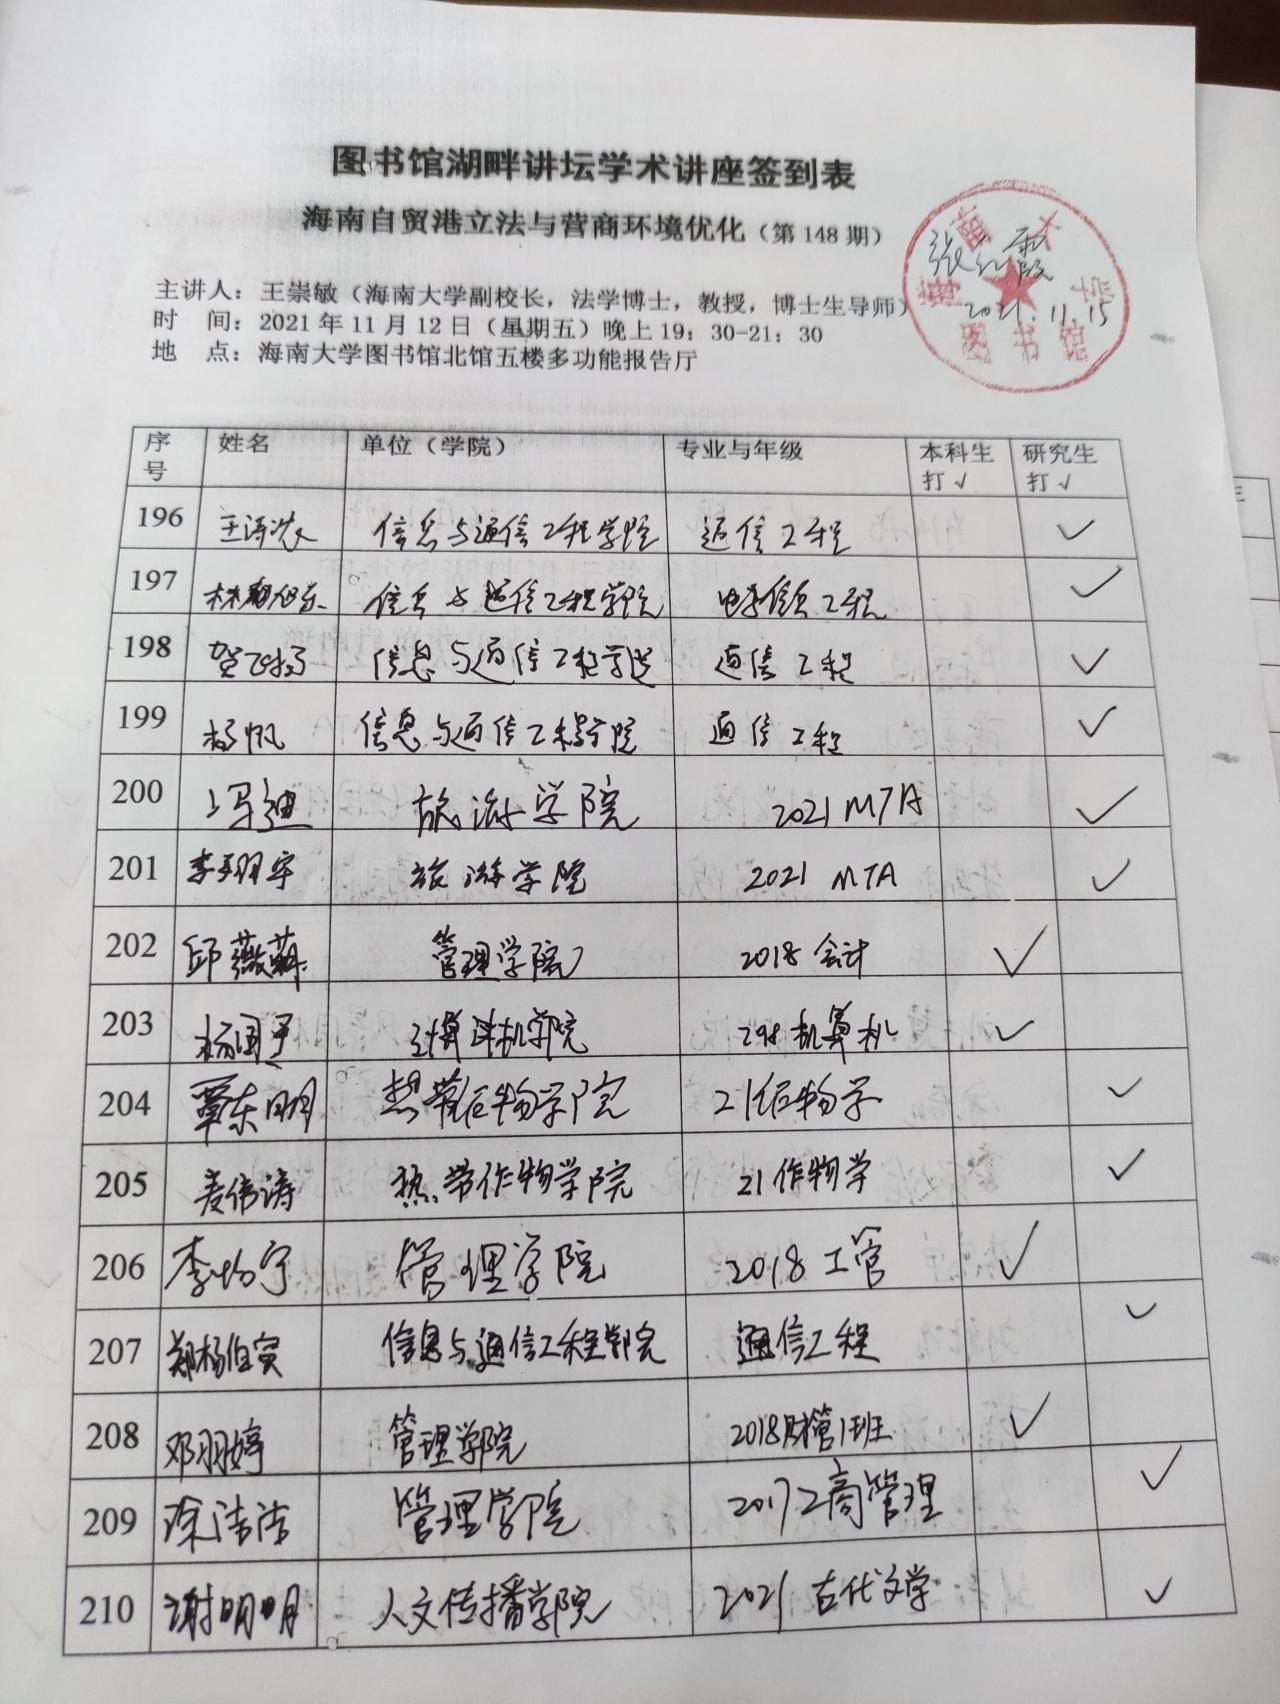 图书馆湖畔讲坛学术讲座签到表
海南自贸港立法与营商环境优化（第 148 期）
海南大学
图书馆
2021.11.15
主讲人：王崇敏（海南大学副校长，法学博士，教授，博士生导师）
时　间：2021 年 11 月 12 日（星期五）晚上 19：30-21：30
地　点：海南大学图书馆北馆五楼多功能报告厅
序号 姓名 单位（学院） 专业与年级 本科生打√ 研究生打√
196 信息与通信工程学院 通信工程 ✓
197 信息与通信工程学院 电子信息工程 ✓
198 贺飞扬 信息与通信工程学院 通信工程 ✓
199 杨帆 信息与通信工程学院 通信工程 ✓
200 冯迪 旅游学院 2021 MTA ✓
201 李翔宇 旅游学院 2021 MTA ✓
202 邱薇 管理学院 2018 会计 ✓
203 杨国 计算机学院 机算机 ✓
204 覃东明 热带作物学院 21作物学 ✓
205 麦伟涛 热带作物学院 21作物学 ✓
206 李均宁 管理学院 2018 工管 ✓
207 郑杨伯实 信息与通信工程学院 通信工程 ✓
208 邓羽婷 管理学院 2018财管1班 ✓
209 涂洁洁 管理学院 2017工商管理 ✓
210 谢明明 人文传播学院 2021 古代文学 ✓